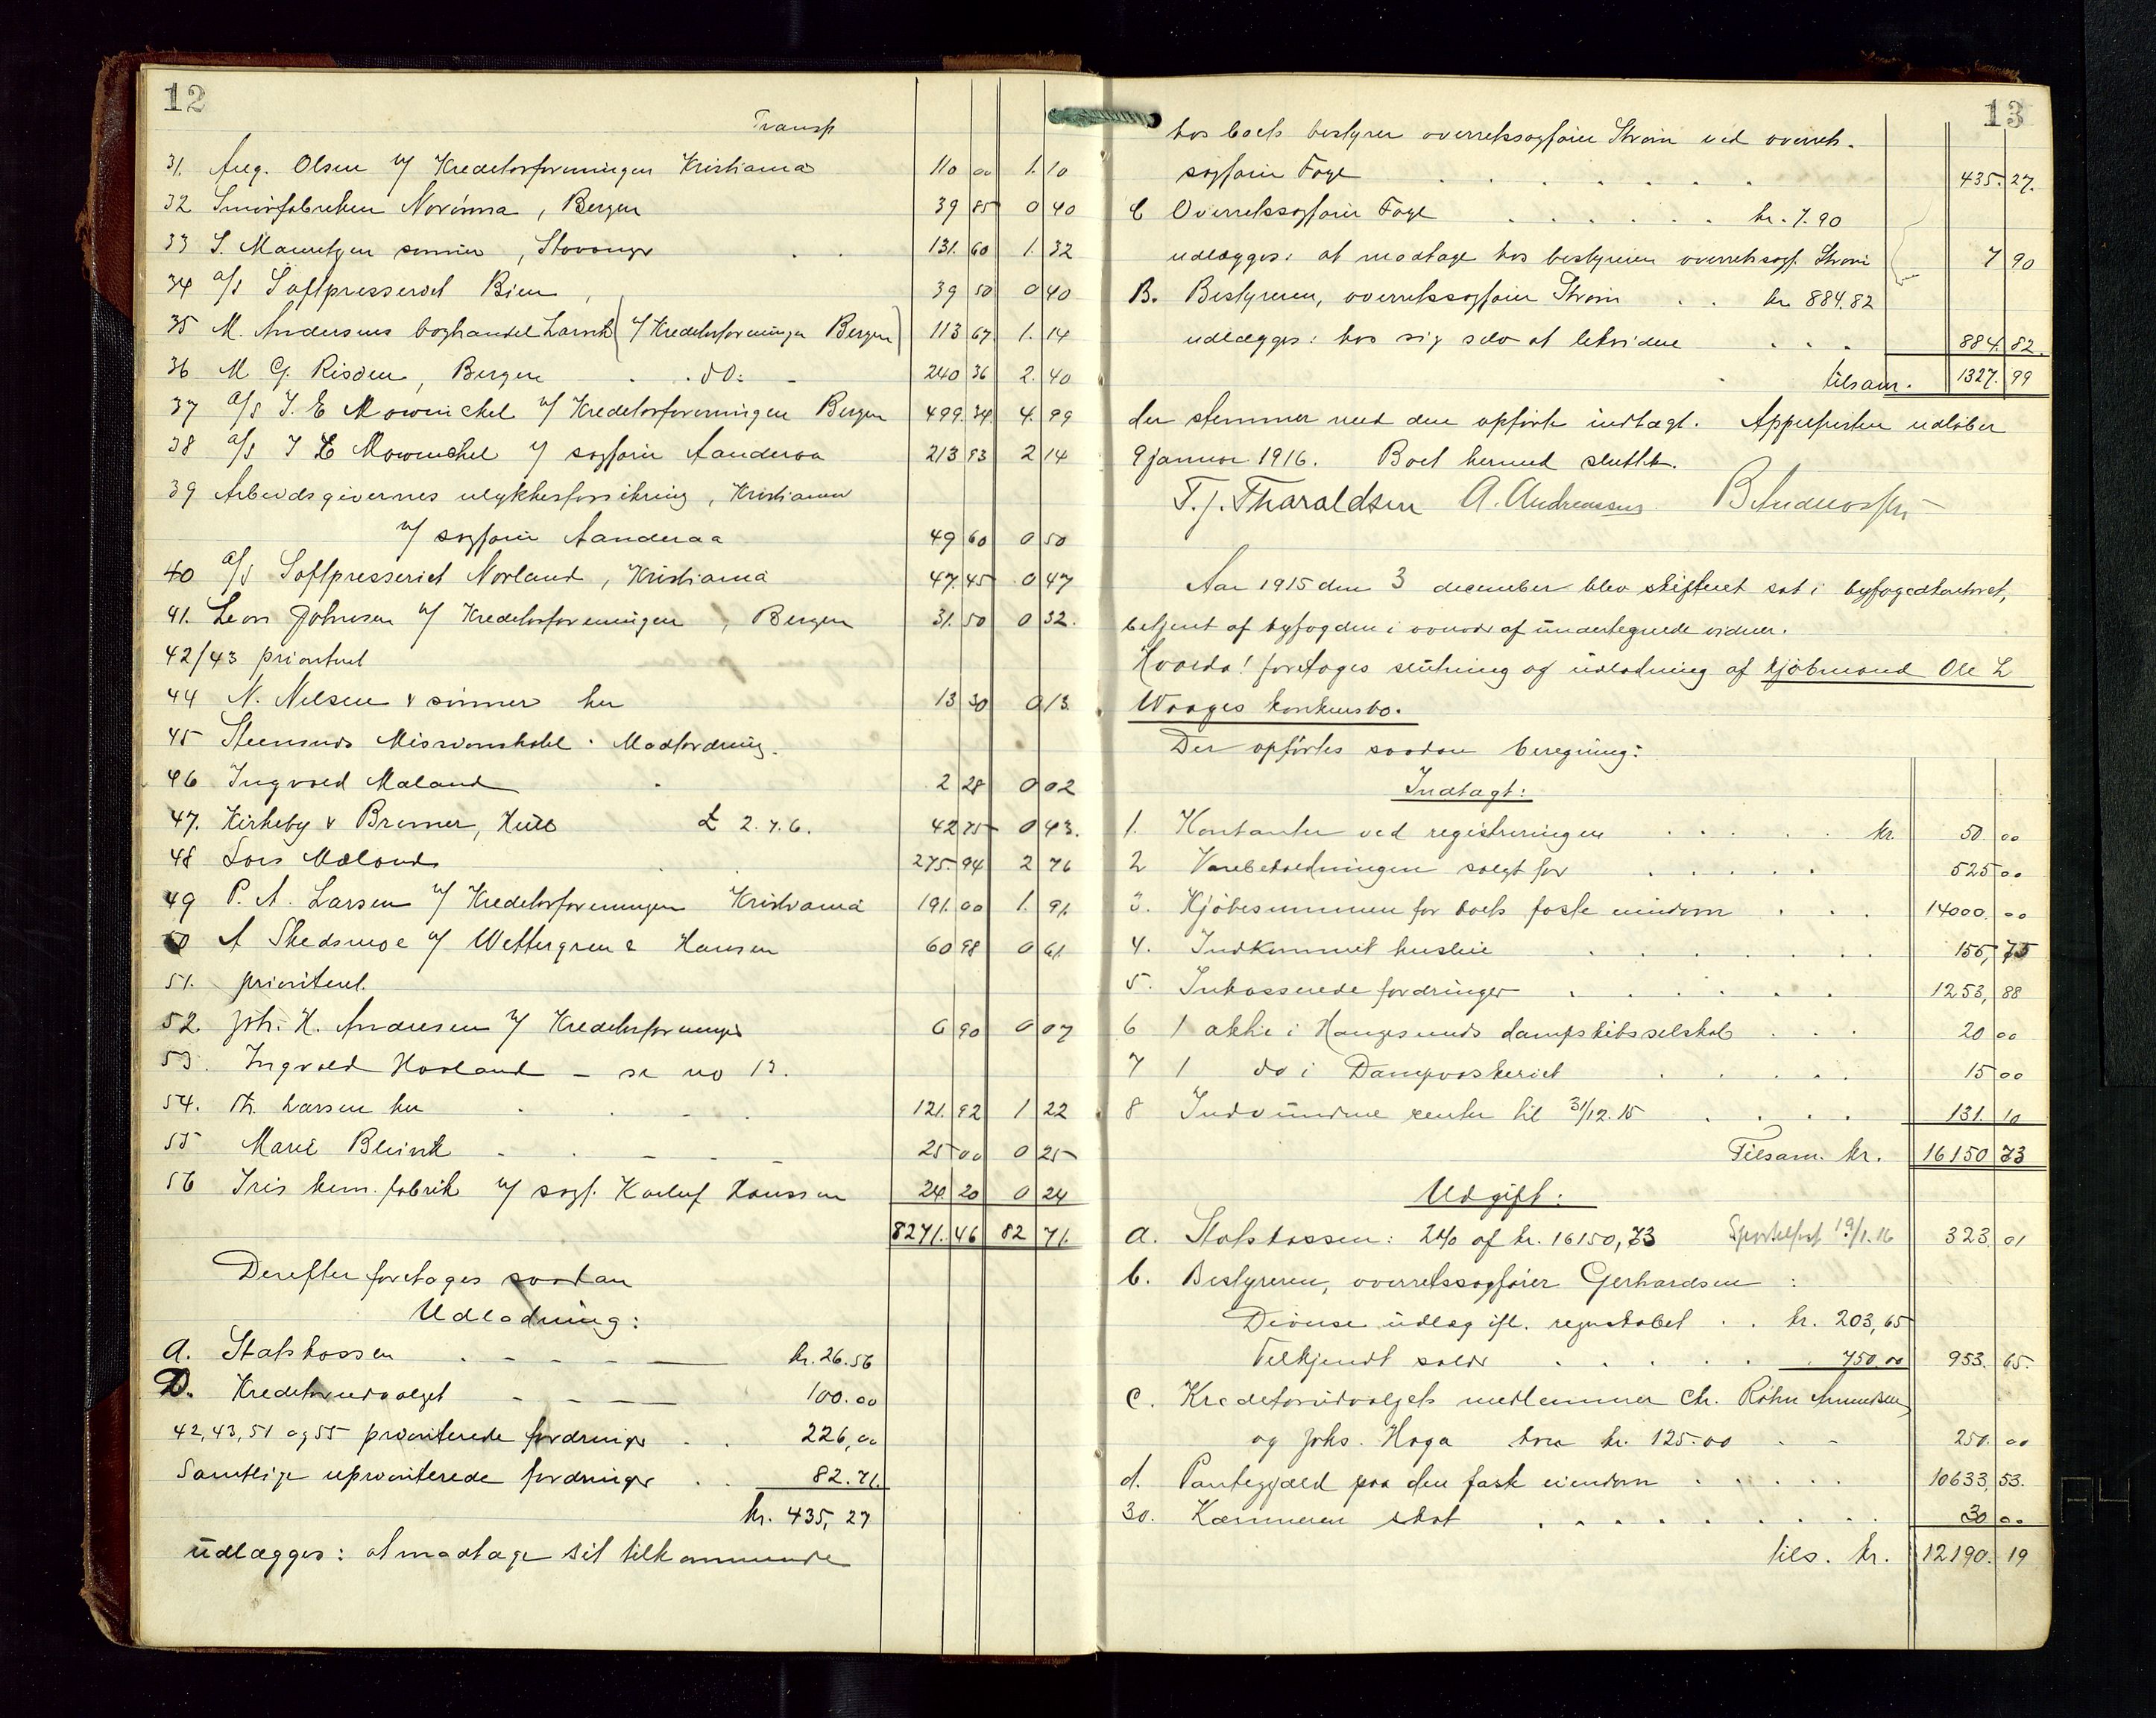 12
Transp
31. Aug. Olsen v/ Kreditorforeningen Kristiania 110 00 1. 10
32 Smørfabriken Norønna, Bergen 39 85 0 40
33 S. Mauritzen sønner, Stavanger 131. 60 1. 32
34 a/s Saftpresseriet Bien, 39 50 0 40
35 M. Andersens boghandel Larvik (v/ Kreditorforeningen Bergen) 113 67. 1. 14
36 M. G. Risøen, Bergen do: 240 36 2. 40
37 a/s J. E. Mowinckel v/ Kreditorforeningen Bergen 499. 34. 4. 99
38 a/s J E Mowinckel v/ sagfører Aanderaa 213 93 2 14
39 Arbeidsgivernes ulykkesforsikring, Kristiania
v/ sagfører Aanderaa 49 60 0 50
40 a/s Saftpresseriet Norland, Kristiania 47. 45 0 47
41. Leon Johnsen v/ Kreditorforeningen, Bergen 31. 50 0 32.
42/43 prioritert
44 N. Nilsen & sønner her 13 30 0 13.
45 Steensnes Missionshotel. Modfordring.
46 Ingvald Maland 2 28 0 02
47. Kirkeby & Bremer, Hull £ 2. 7. 6. 42 75 0 43.
48 Lars Mæland 275. 94 2 76
49 P. A. Larsen v/ Kreditorforeningen Kristiania 191. 00 1. 91.
50 A Skedsmoe v/ Wettergreen & Hansen 60 98 0 61.
51. prioritert.
52 Joh. H. Andresen v/ Kreditorforeningen 6 90 0 07
53. Ingvald Haaland – se no 13.
54. Th. Larsen her 121. 92 1 22
55 Marie Bleivik 25 00 0 25
56 Iris kem. fabrik v/ sagf. Hanssen 24. 20 0 24
8271. 46 82 71.
Derefter foretages saadan
Udlodning:
A. Statskassen kr. 26. 56
D. Kreditorudvalget 100. 00
42, 43, 51 og 55 prioriterede fordringer 226, 00
Samtlige uprioriterede fordringer 82. 71.
kr. 435, 27
udlægges: at modtage sit tilkommende
13
hos boets bestyrer overretssagfører Strøm ved overrets-
sagfører Foye 435. 27.
C Overretssagfører Foye kr. 7. 90
udlægges: at modtage hos bestyreren overretssagf. Strøm 7 90
B. Bestyreren, overretssagfører Strøm kr. 884. 82
udlægges: hos sig selv at likvidere 884. 82.
tilsam. 1327. 99
der stemmer med den opførte indtægt. Appelfristen udløber
9 januar 1916. Boet hermed sluttet.
T. J. Tharaldsen A. Andreassen
Aar 1915 den 3 december blev skifteret sat i byfogedkontoret,
betjent af byfogden i overvær af undertegnede vidner.
Hvorda! foretages slutning og udlodning af kjøbmand Ole L
Waages konkursbo.
Der opførtes saadan beregning:
Indtægt:
1. Kontanter ved registreringen kr. 50. 00
2 Varebeholdningen solgt for 525 00
3. Kjøbesummen for boets faste eiendom 14000. 00
4. Indkommet husleie 155, 75
5. Inkasserede fordringer 1253, 88
6 1 aktie i Haugesunds dampskibsselskab 20 00
7 1 do i Dampvaskeriet 15 00
8 Indvundne renter til 31/12. 15 131. 10
Tilsam. kr. 16150 73
Udgift:
a. Statskassen: 2% af kr. 16150,73 Sportelført 19/1. 16 323. 01
b. Bestyreren, overretssagfører Gerhardsen:
Diverse udlæg ifl. regnskabet kr. 203,65
Tilkjendt salær 750. 00 953. 65.
c. Kreditorudvalgets medlemmer Chr. Røhn Amundsen
og Johs. Haga hver kr. 125.00 250. 00
d. Pantegjæld paa den faste eiendom 10633, 53.
30. Kæmneren skat 30 00
tils. kr. 12190. 19